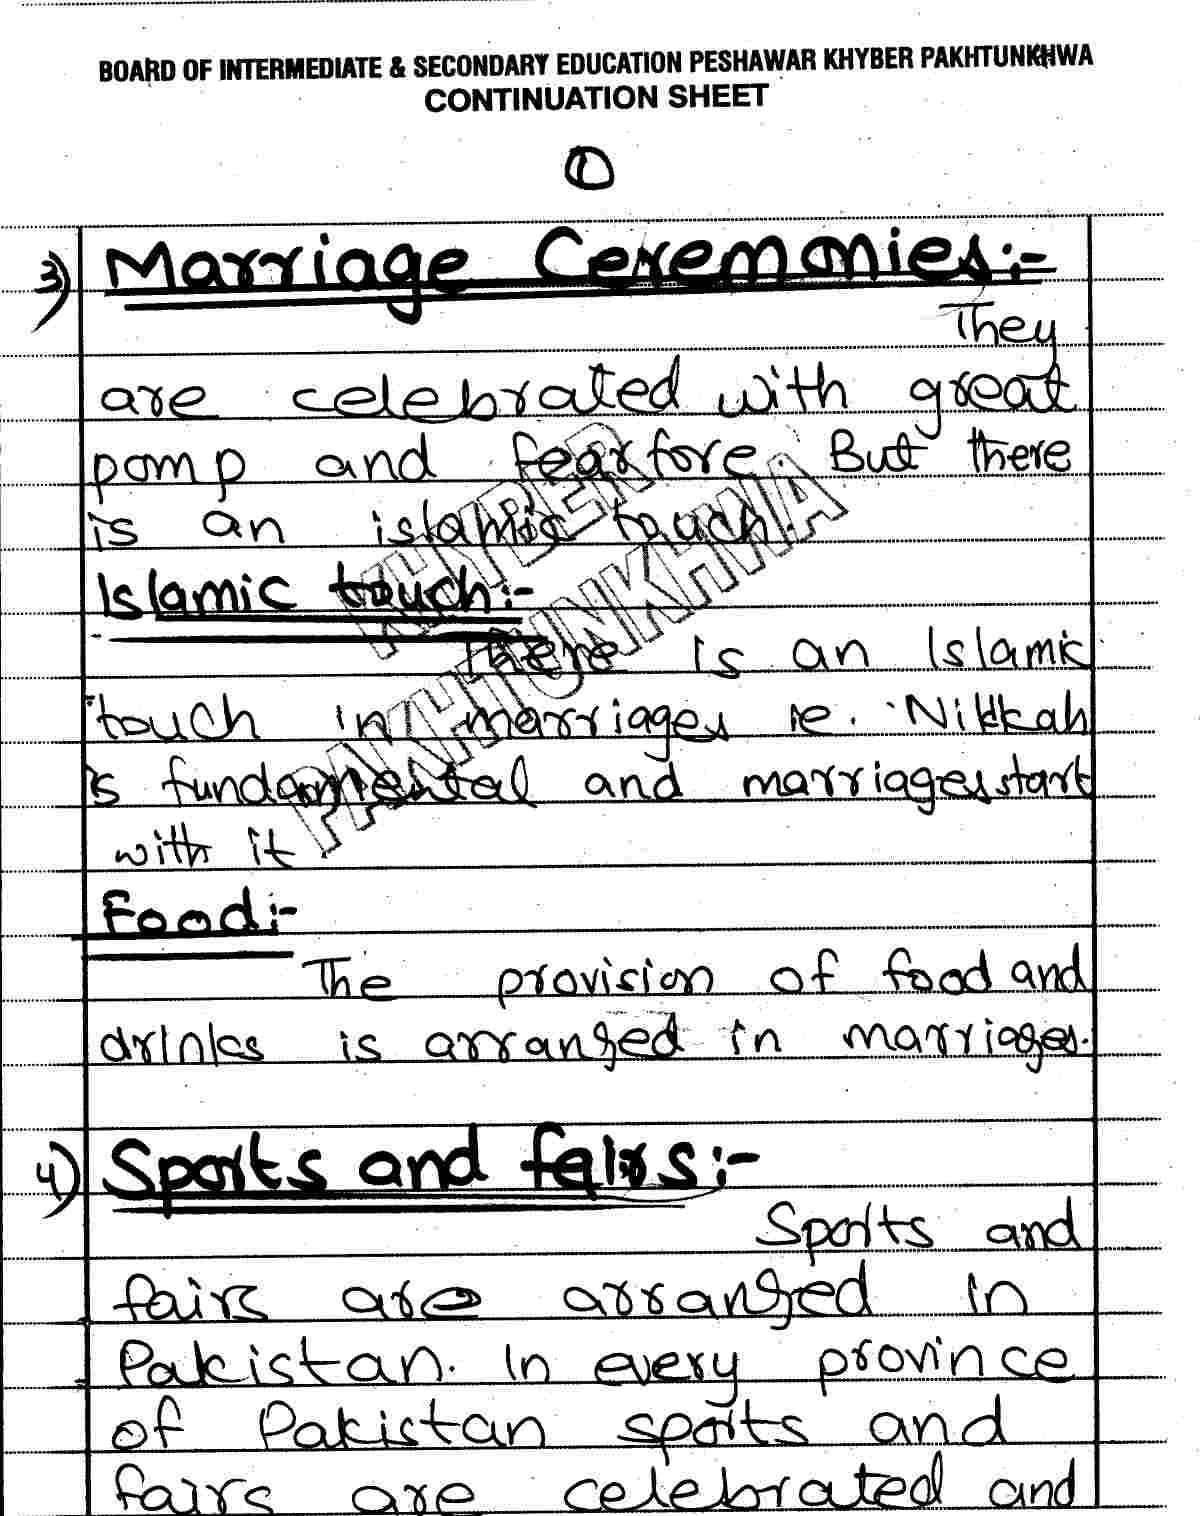 BOARD OF INTERMEDIATE & SECONDARY EDUCATION PESHAWAR KHYBER PAKHTUNKHWA
CONTINUATION SHEET
1
3) Marriage Ceremonies:-
They
are celebrated with great
pomp and fearfore But there
is an islamic touch.
Islamic touch:-
There is an Islamic
touch in marriages ie. Nikkah
is fundamental and marriages start
with it
Food:-
The provision of food and
drinks is arranged in marriages.
4) Sports and fairs:-
Sports and
fairs are arranged in
Pakistan. In every province
of Pakistan sports and
fairs are celebrated and
KHYBER
PAKHTUNKHWA